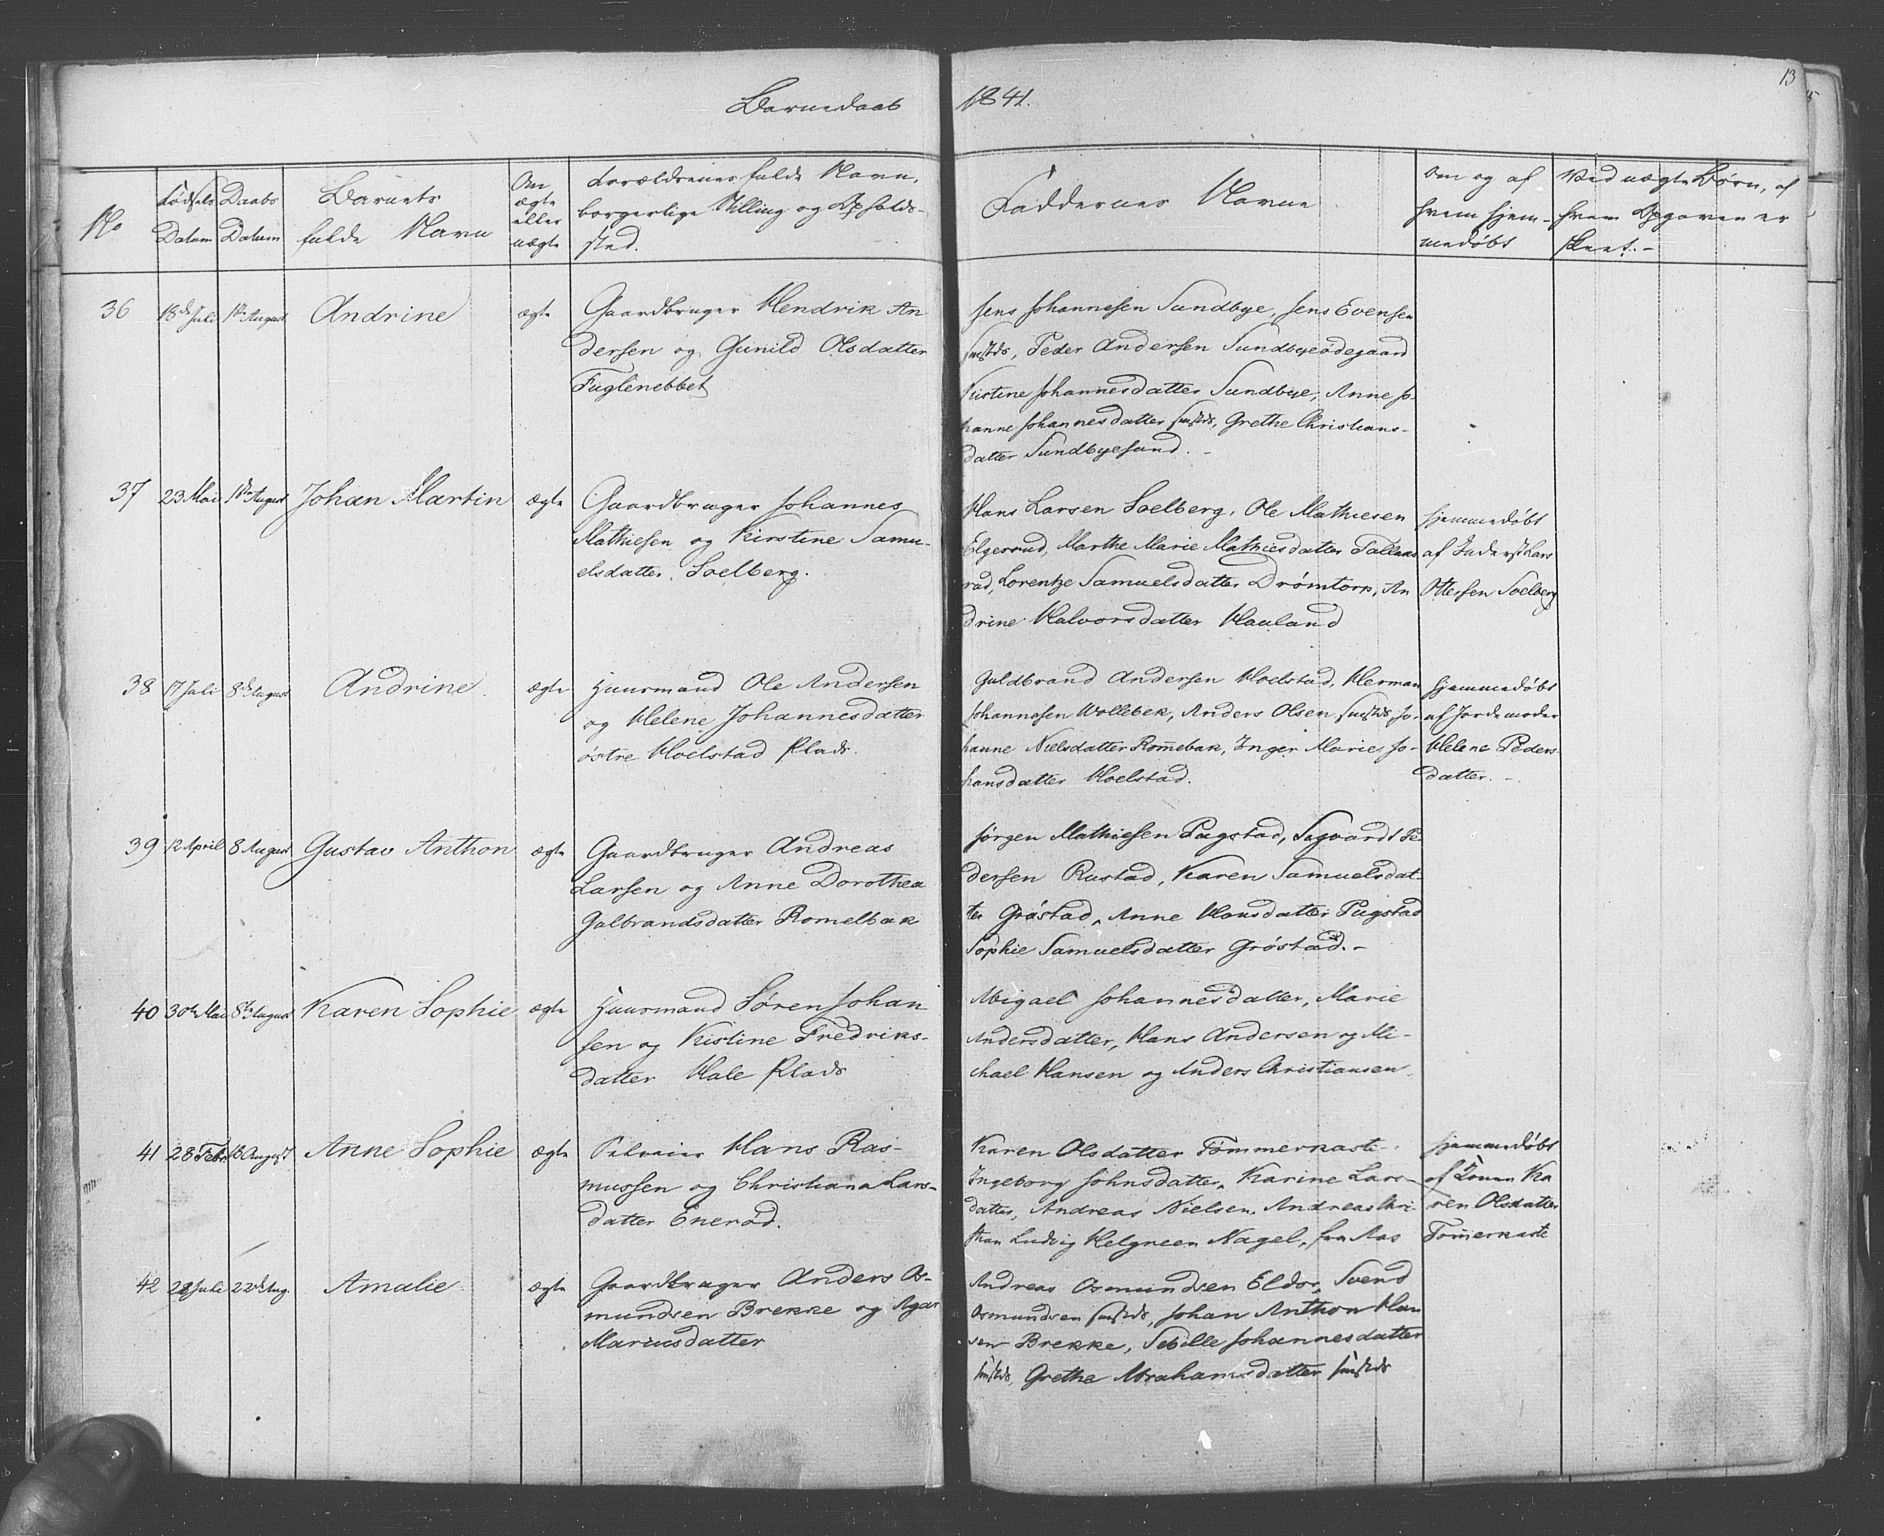 Barnedaab 1841.
13
No
Fødsels Datum
Daabs Datum
Barnets fulde Navn
Om ægte eller uægte
Forældrenes fulde Navn, borgerlige Stilling og Opholdssted.
Faddernes Navne
Om og af hvem hjemmedøbt
Ved uægte Børn, af hvem Opgaven er skeet.-
36 18de Juli 1ste August Andrine ægte
Gaardbruger Hendrik An
dersen og Gunild Olsdatter
Fuglenebbet
Jens Johannesen Sundbye, Jens Evensen
sasteds, Peder Andersen Sundbyeødegaard
Kistine Johannesdatter Sundbye, Anne Jo
hanne Johannesdatter sasteds, Grethe Christians-
datter Sundbyesund. -
37 23 Mai 1ste August Johan Martin ægte
Gaardbruger Johannes
Mathiesen og Kirstine Samu-
elsdatter Soelberg.
Hans Larsen Soelberg, Ole Mathiesen
Elgerud, Marthe Marie Mathiesdatter Tallaus
rud, Lorentze Samuelsdatter Drømtorp, An
drine Halvorsdatter Hauland
hjemmedøbt
af Lars
Ottersen Soelberg
38 17 Juli 8de August Andrine ægte
Huusmand Ole Andersen
og Helene Johannesdatter
østre Hoelstad Plads.
Guldbrand Andersen Hoelstad, Herman
Johannesen Wollebek, Anders Olsen sasteds Jo-
hanne Nielsdatter Romebak, Inger Marie Jo-
hansdatter Hoelstad.
hjemmedøbt
af Jordemoder
Helene Peders
datter. -
39 12 April 8 August Gustav Anthon ægte
Gaardbruger Andreas
Larsen og Anne Dorothea
Gulbrandsdatter Romelbak
Jørgen Mathiesen Pugstad, Sygvardt Pe
dersen Rustad, Karen Samuelsdat-
ter Grøstad, Anne Hansdatter Pugstad
Sophie Samuelsdatter Grøstad. -
40 30te Mai 8de August Karen Sophie ægte
Huusmand Søren Johan
sen og Kistine Fredriks-
datter Hole Plads
Abigael Johannesdatter, Marie
Andersdatter, Hans Andersen og Mi-
chael Hansen og Anders Christiansen
41 28 Febr 15 August Anne Sophie ægte
Hans Ras-
mussen og Christiana Lars-
datter Enerød.
Karen Olsdatter Tømmerkaste
Ingeborg Johnsdatter, Karine Lars-
datter, Andreas Nielsen, Andreas Chri-
stian Ludvig Helgreen Nagel, fra Aas
hjemmedøbt
af Konen Ka
ren Olsdatter
Tømerkaste
42 28 Juli 22de Aug. Amalie ægte
Gaardbruger Anders As-
mundsen Brekke og Agar
Mariusdatter
Andreas Asmundsen Eldor, Svend
Asmundsen sasteds, Johan Anthon Han
sen Brekke, Sebille Johannesdatter
sasteds, Grethe Abrahamsdatter sasteds